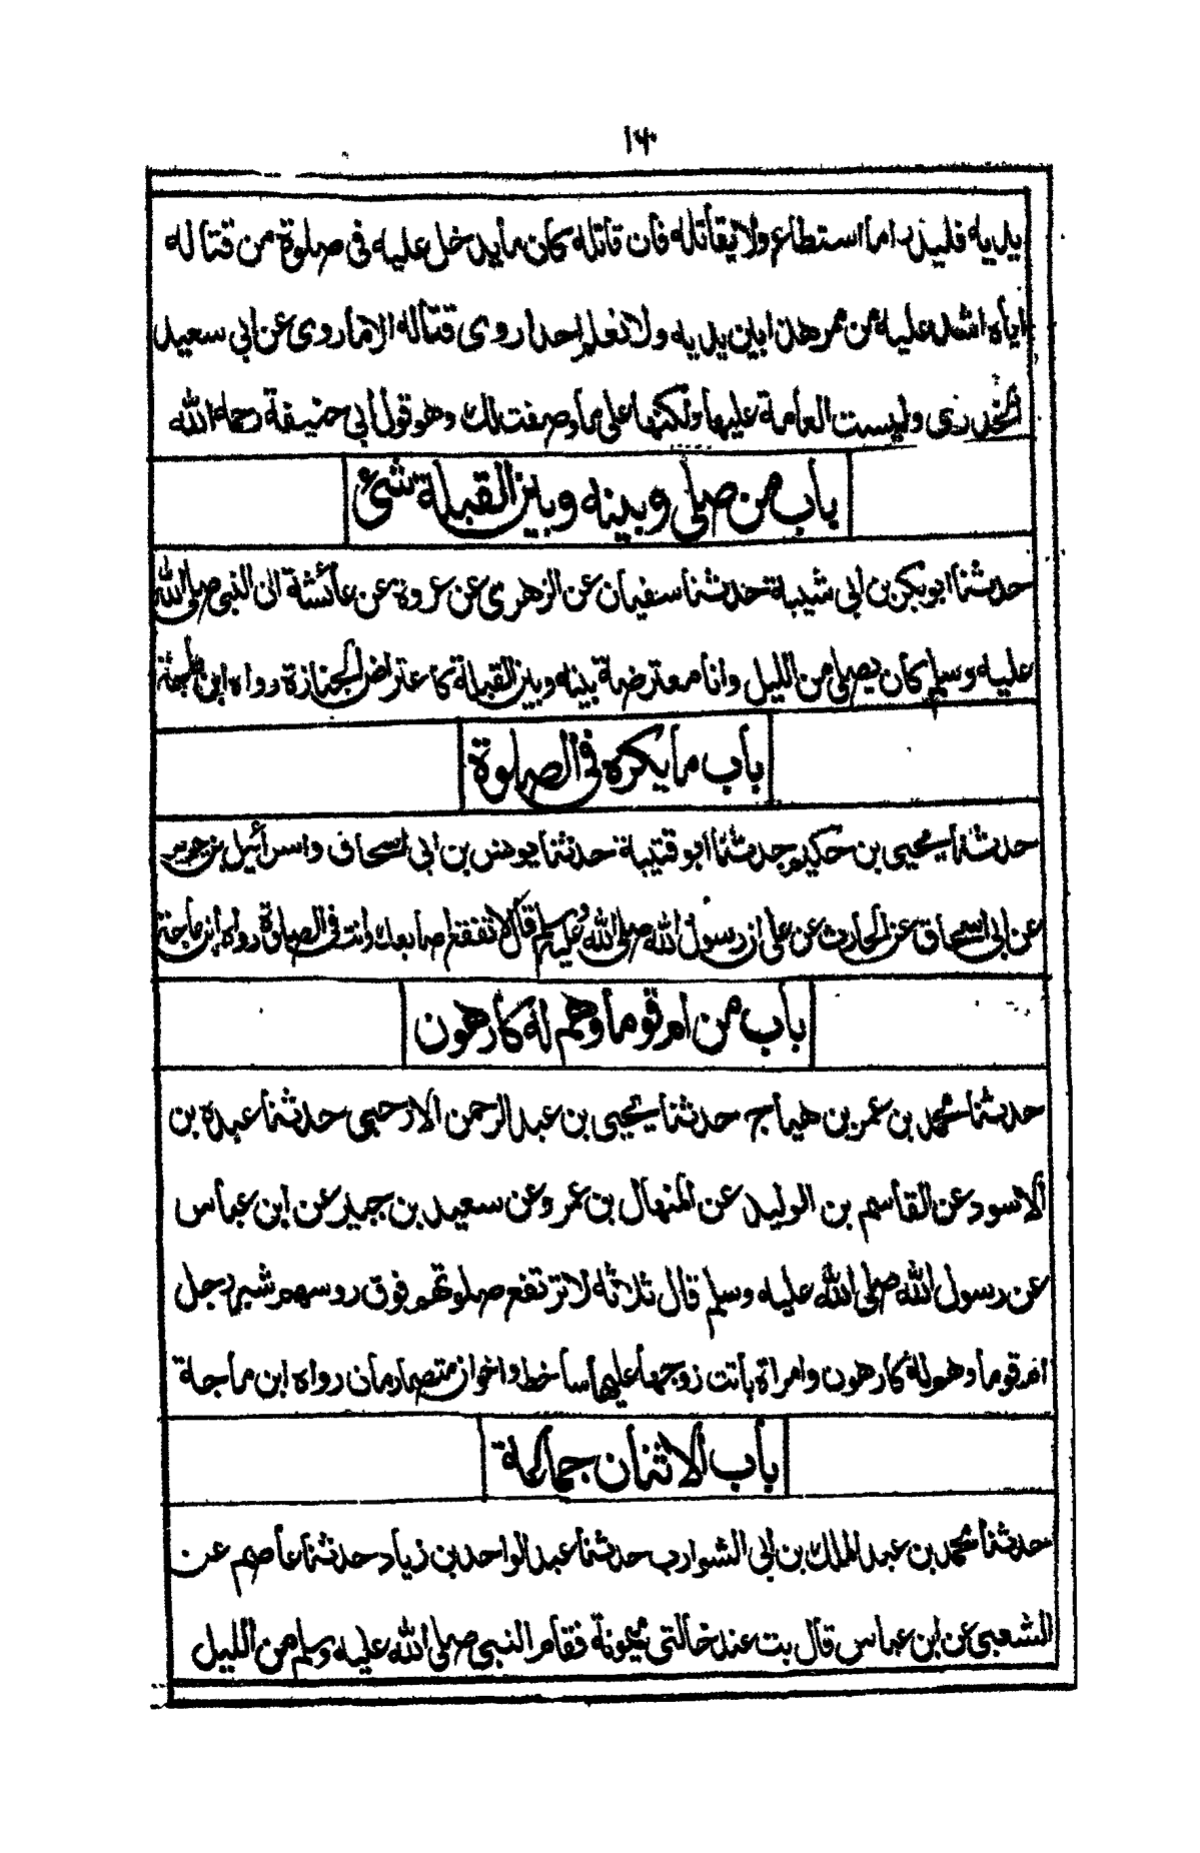 ١٦٠
يديه فليدرء ما استطاع ولا يقاتله فان قاتله كان ما يدخل عليه فى صلوة من قتاله
اياه اشد عليه من ممر هذا بين يديه ولا نعلم احدا روى قتاله الا ما روى عن ابى سعيد
الخدرى وليست العامة عليها ولكنها على ما وصفت لك وهو قول ابى حنيفة رحمه الله
باب من صلى وبينه وبين القبلة شئ
حدثنا ابو بكر بن ابى شيبة حدثنا سفيان عن الزهرى عن عروة عن عائشة ان النبى صلى الله
عليه وسلم كان يصلى من الليل وانا معترضة بينه وبين القبلة كاعتراض الجنازة رواه ابن ماجة
باب ما يكره فى الصلوة
حدثنا يحيى بن حكيم حدثنا ابو قتيبة حدثنا يونس بن ابى اسحاق واسرائيل بن يونس
عن ابى اسحاق عن الحارث عن على ان رسول الله صلى الله عليه وسلم قال لا تفقع اصابعك وانت فى الصلوة رواه ابن ماجة
باب من ام قوما وهم له كارهون
حدثنا محمد بن عمر بن هياج حدثنا يحيى بن عبد الرحمن الارحبى حدثنا عبدة بن
الاسود عن القاسم بن الوليد عن المنهال بن عمرو عن سعيد بن جبير عن ابن عباس
عن رسول الله صلى الله عليه وسلم قال ثلاثة لا ترتفع صلوتهم فوق روسهم شبر رجل
ام قوما وهم له كارهون وامراة باتت زوجها عليها ساخط واخوان متصارمان رواه ابن ماجة
باب الاثنان جماعة
حدثنا محمد بن عبد الملك بن ابى الشوارب حدثنا عبد الواحد بن زياد حدثنا عاصم عن
الشعبى عن ابن عباس قال بت عند خالتى ميمونة فقام النبى صلى الله عليه وسلم من الليل